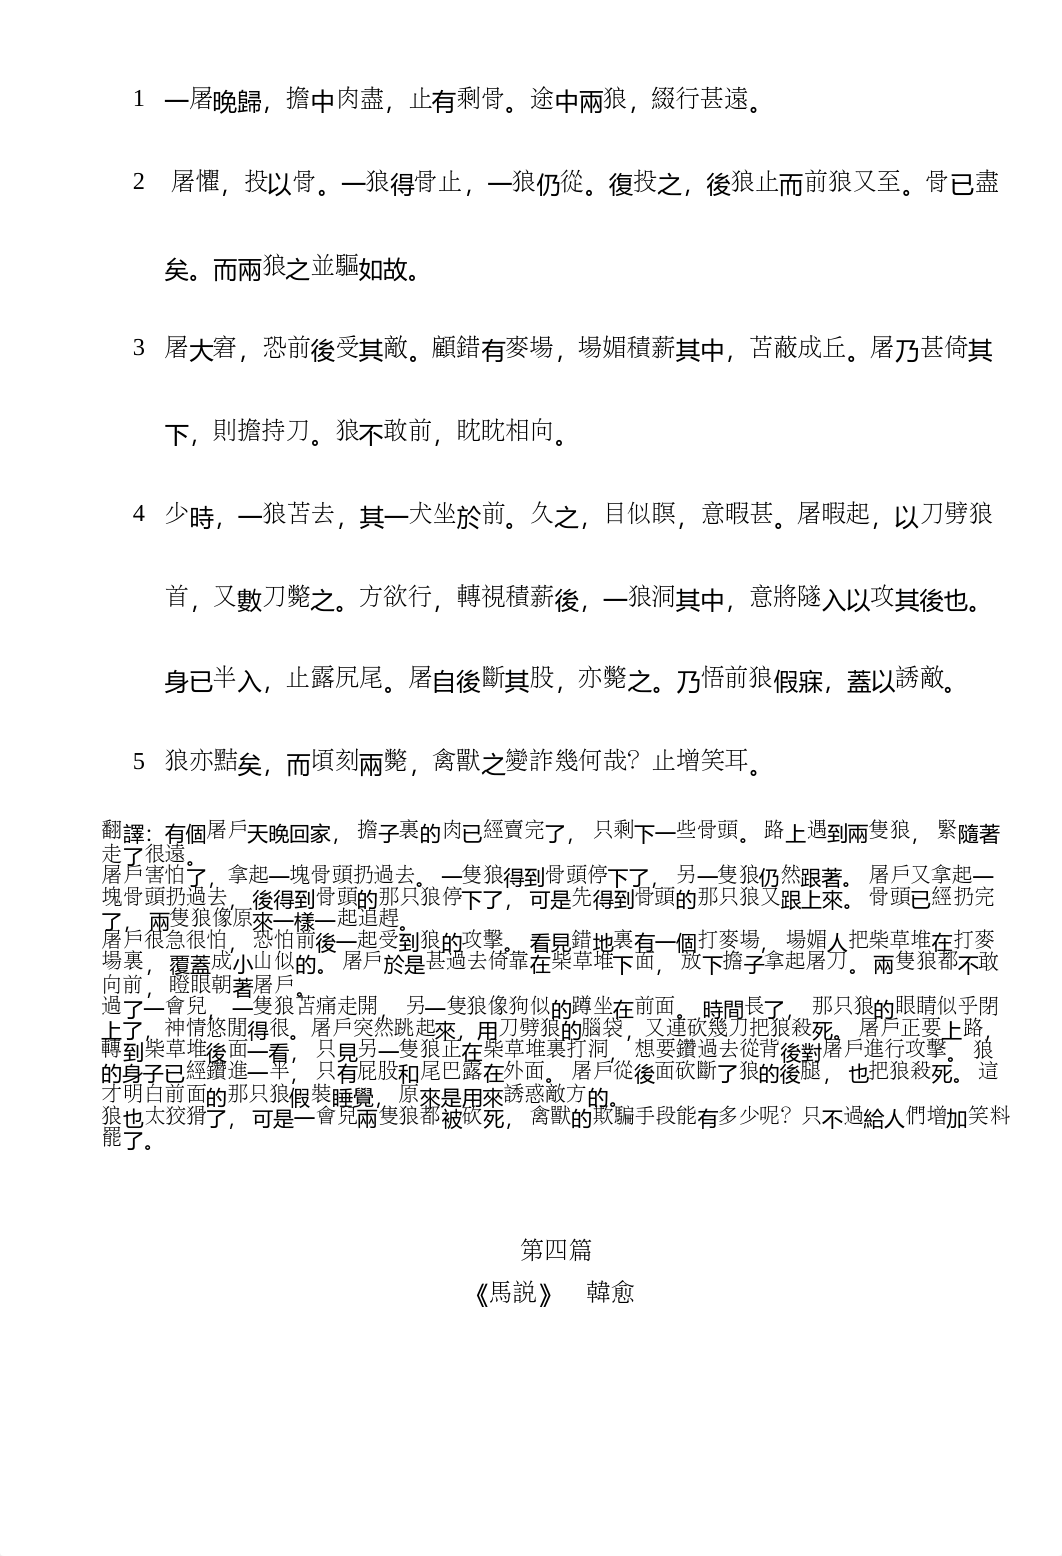 1 一屠晚歸，擔中肉盡，止有剩骨。途中兩狼，綴行甚遠。
2 屠懼，投以骨。一狼得骨止，一狼仍從。復投之，後狼止而前狼又至。骨已盡
矣。而兩狼之並驅如故。
3 屠大窘，恐前後受其敵。顧錯有麥場，場媚積薪其中，苫蔽成丘。屠乃甚倚其
下，則擔持刀。狼不敢前，眈眈相向。
4 少時，一狼苦去，其一犬坐於前。久之，目似瞑，意暇甚。屠暇起，以刀劈狼
首，又數刀斃之。方欲行，轉視積薪後，一狼洞其中，意將隧入以攻其後也。
身已半入，止露尻尾。屠自後斷其股，亦斃之。乃悟前狼假寐，蓋以誘敵。
5 狼亦黠矣，而頃刻兩斃，禽獸之變詐幾何哉？止增笑耳。
翻譯：有個屠戶天晚回家，擔子裏的肉已經賣完了，只剩下一些骨頭。路上遇到兩隻狼，緊隨著
走了很遠。
屠戶害怕了，拿起一塊骨頭扔過去。一隻狼得到骨頭停下了，另一隻狼仍然跟著。屠戶又拿起一
塊骨頭扔過去，後得到骨頭的那只狼停下了，可是先得到骨頭的那只狼又跟上來。骨頭已經扔完
了，兩隻狼像原來一樣一起追趕。
屠戶很急很怕，恐怕前後一起受到狼的攻擊。看見錯地裏有一個打麥場，場媚人把柴草堆在打麥
場裏，覆蓋成小山似的。屠戶於是甚過去倚靠在柴草堆下面，放下擔子拿起屠刀。兩隻狼都不敢
向前，瞪眼朝著屠戶。
過了一會兒，一隻狼苦痛走開，另一隻狼像狗似的蹲坐在前面。時間長了，那只狼的眼睛似乎閉
上了，神情悠閒得很。屠戶突然跳起來，用刀劈狼的腦袋，又連砍幾刀把狼殺死。屠戶正要上路，
轉到柴草堆後面一看，只見另一隻狼正在柴草堆裏打洞，想要鑽過去從背後對屠戶進行攻擊。狼
的身子已經鑽進一半，只有屁股和尾巴露在外面。屠戶從後面砍斷了狼的後腿，也把狼殺死。這
才明白前面的那只狼假裝睡覺，原來是用來誘惑敵方的。
狼也太狡猾了，可是一會兒兩隻狼都被砍死，禽獸的欺騙手段能有多少呢？只不過給人們增加笑料
罷了。
第四篇
《馬説》 韓愈